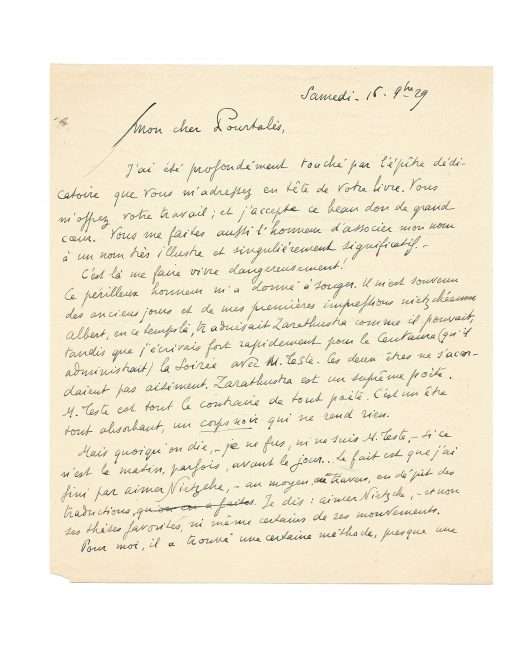 Samedi - 16. 9bre 29
Mon cher Pourtalès,
J'ai été profondément touché par l'épître dédi-
catoire que vous m'adressez en tête de votre livre. Vous
m'offrez votre travail ; et j'accepte ce beau don de grand
cœur. Vous me faites aussi l'honneur d'associer mon nom
à un nom très illustre et singulièrement significatif. -
C'est là me faire vivre dangereusement !
Ce périlleux honneur m'a donné à songer. Il m'est souvenu
des anciens jours et de mes premières impressions nietzschéennes
Albert, en ce temps là, traduisait Zarathustra comme il pouvait,
tandis que j'écrivais fort rapidement pour le Centaure (qu'il
administrait) la Soirée avec M. Teste. Ces deux êtres ne s'accor-
daient pas aisément. Zarathustra est un suprême poète.
M. Teste est tout le contraire de tout poète. C'est un être
tout absorbant, un corps noir qui ne rend rien.
Mais quoiqu'on die, - je ne fus, ni ne suis M. Teste, - si ce
n'est le matin, parfois, avant le jour.. Le fait est que j'ai
fini par aimer Nietzche, - au moyen, au travers, en dépit des
traductions, qu'on en a faites. Je dis : aimer Nietzche, - et non
ses thèses favorites, ni même certains de ses mouvements.
Pour moi, il a trouvé une certaine méthode, presque une